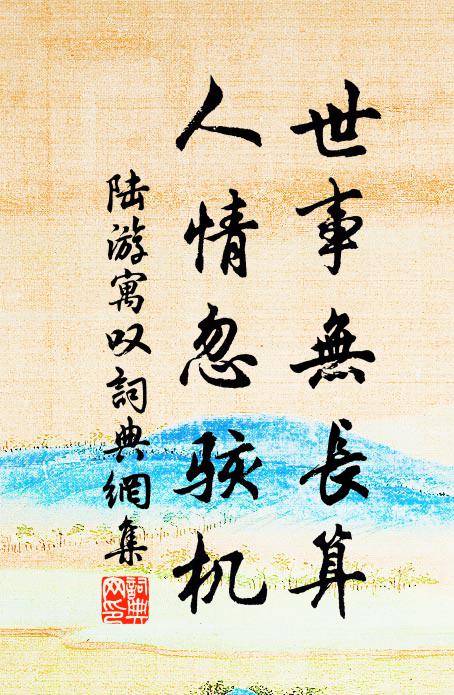 世事無長算
人情忽駭机
陆游寓叹詞典網集
詞典